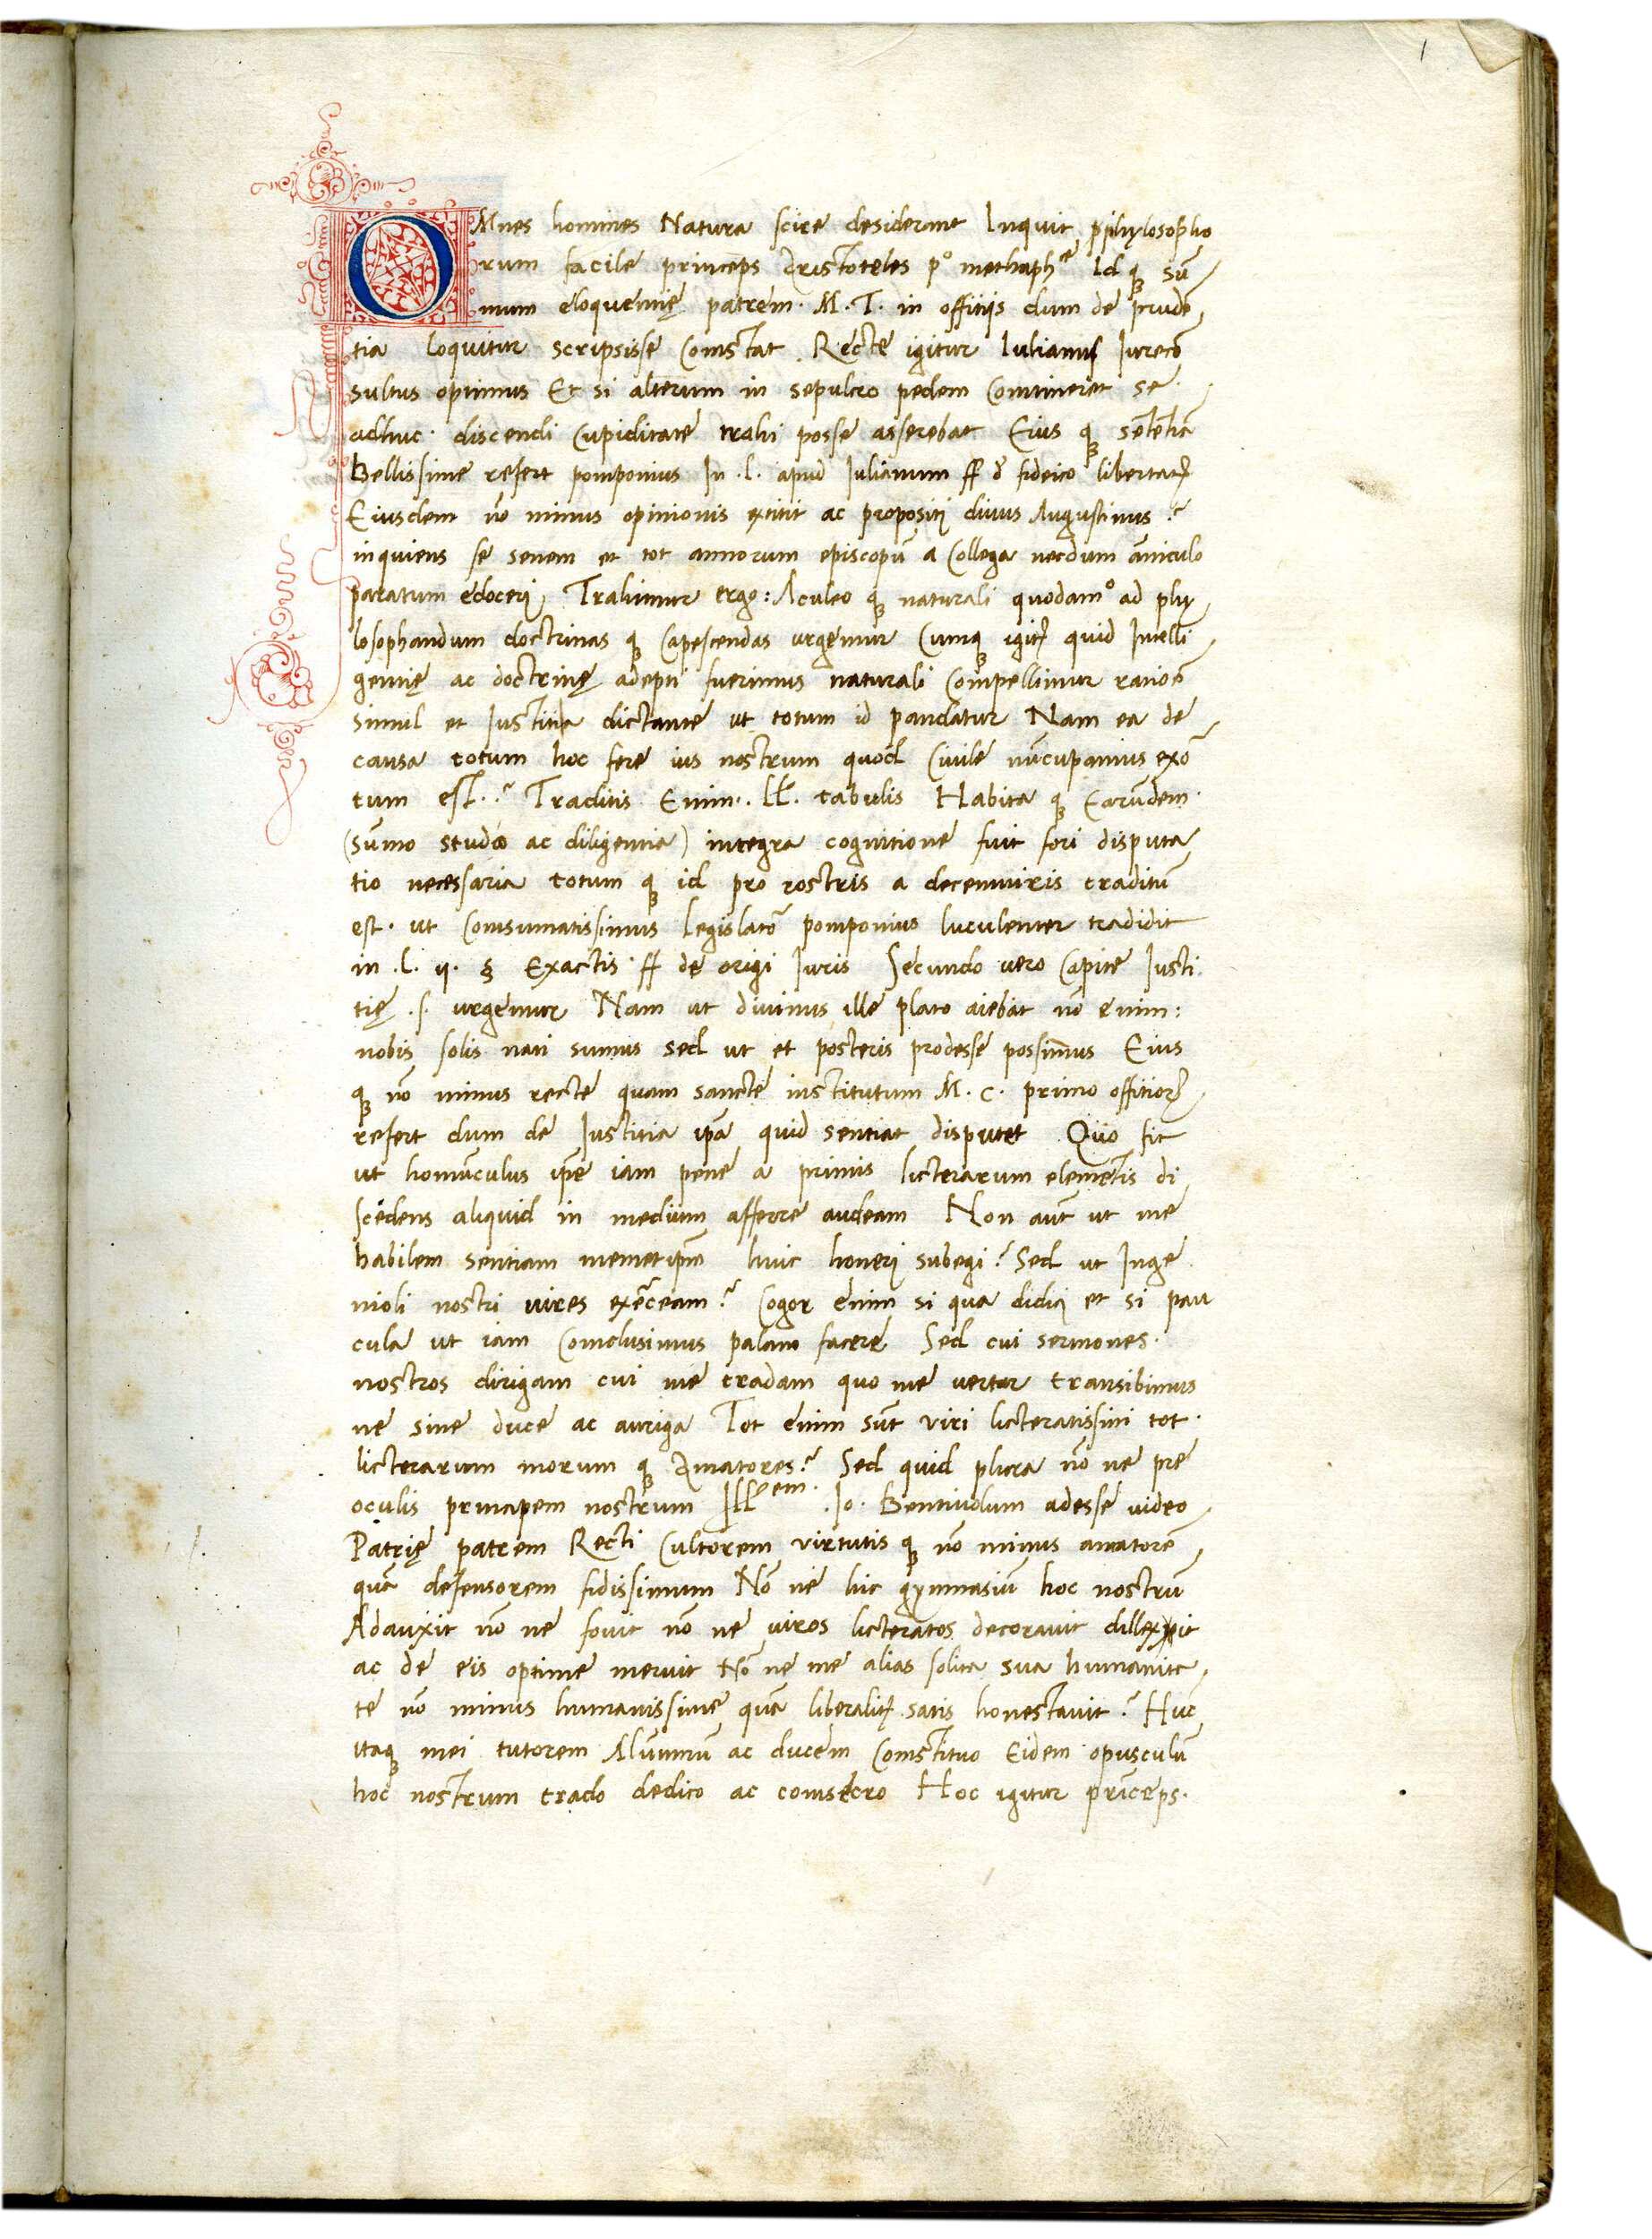 1
OMnes homines Natura scire desiderant Inquit pphylosopho
rum facile princeps Aristoteles pº methaphᶜᵉ Id qȝ sū
mum eloquentię patrem· M·T· in offitijs dum de prudē
tia loquitur scripsisse Comstat. Recte igitur Iulianus Iurecō
sultus optimus Et si alterum in sepulcro pedem Comtineret se·
adhuc· discendi Cupiditate trahi posse asserebat Eius qȝ sētētiā
Bellissime refert pomponius In .l. apud Iulianum ff đ fideicō libertatȝ
Eiusdem nō minus opinionis extitit ac propositi diuus Augustinus ?
inquiens se senem et tot annorum episcopū a Collega necdum āniculo
paratum edoceri, Trahimur ergo: Aculeo qȝ naturali quodamº ad phy
losophandum doctrinas qȝ Capescendas urgemur Cumqȝ igitȝ quid Intelli
gentię ac doctrinę adepti fuerimus naturali Compellimur ratiōe
simul et Iustitia dictante ut totum id pandatur Nam ea de
causa totum hoc fere ius nostrum quod Ciuile nūcupamus exō
tum est. ? Traditis Enim .. ll. tabulis Habita qȝ Earūdem·
(sūmo studio ac diligentia) integra cognitione fuit fori disputa
tio necessaria totum qȝ id pro rostris a decemuiris traditū
est· ut Comsumatissimus Legislatō pomponius luculenter tradidit
in .l. ij. § Exactis· ff de origi Iuris Secundo uero Capite Iusti
tię .s. urgemur Nam ut diuinus ille plato aiebat nō enim:
nobis solis nati sumus sed ut et posteris prodesse possimus Eius
qȝ nō minus recte quam sancte institutum M. C. primo offitioȝ
refert dum de Iustitia ip̄a quid sentiat disputet Quo fit
ut homūculus ip̄e iam pene a primis licterarum elemētis di
scēdens aliquid in medium afferre audeam Non aut̄ ut me
habilem sentiam memetip̄m huic honeri subegi ? Sed ut Inge
nioli nostri uires exerceam ? Cogor enim si qua didici et si pau
cula ut iam Comclusimus palam facere Sed cui sermones·
nostros dirigam cui me tradam quo me uertar transibimus
ne sine duce ac auriga Tot enim sūt viri licteratissimi tot·
licterarum morum qȝ Amatores ? Sed quid plura nō ne pre
oculis principem nostrum Illᵉᵐ· .Io. Bentiuolum adesse uideo
Patrię patrem Recti Cultorem virtutis qȝ nō minus amatorē
quā defensorem fidissimum Nō ne hic gymnasiū hoc nostrū
Adauxit nō ne fouit nō ne viros licteratos decorauit dillexit
ac de eis optime meruit Nō ne me alias solita sua humanita
te nō minus humanissime quā liberalitȝ satis honestauit ? Huc
itaqȝ mei tutorem Alūmnū ac ducem Comstituo Eidem opusculū
hoc nostrum trado dedico ac comsecro Hoc igitur prīceps·